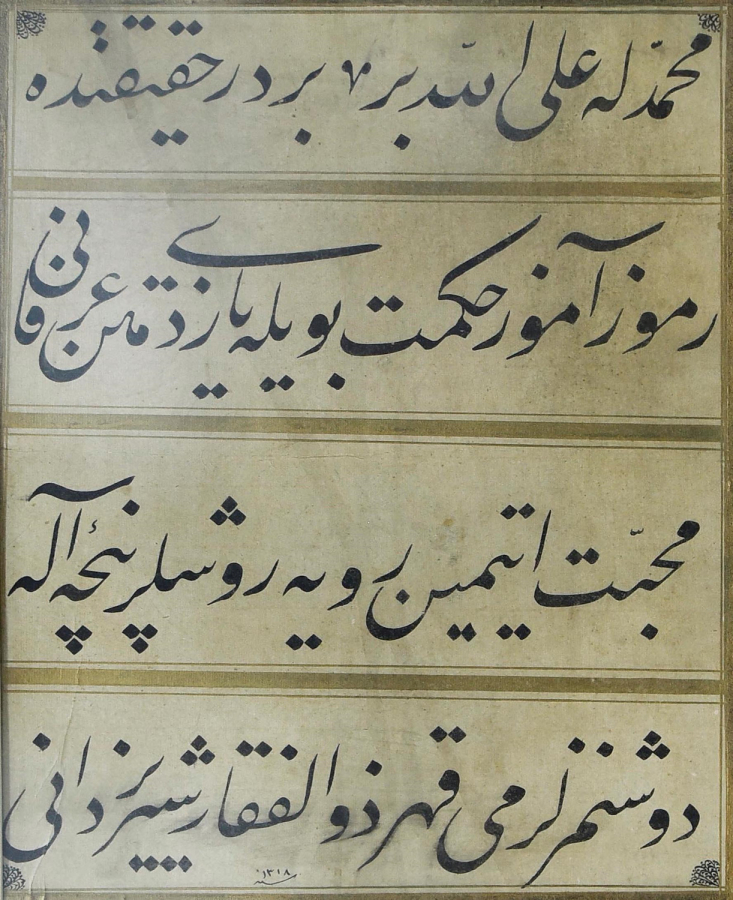 محمّدله علی اللّهده بر بردر حقیقتده
رموز آموز حکمت بویله یازدی متن عرفانی
محبّت ایتمین روبه روشلر پنچهٔ آله
دوشنمزلرمی قهر ذوالفقار شیر یزدانی
سنه ۱۳۱۸